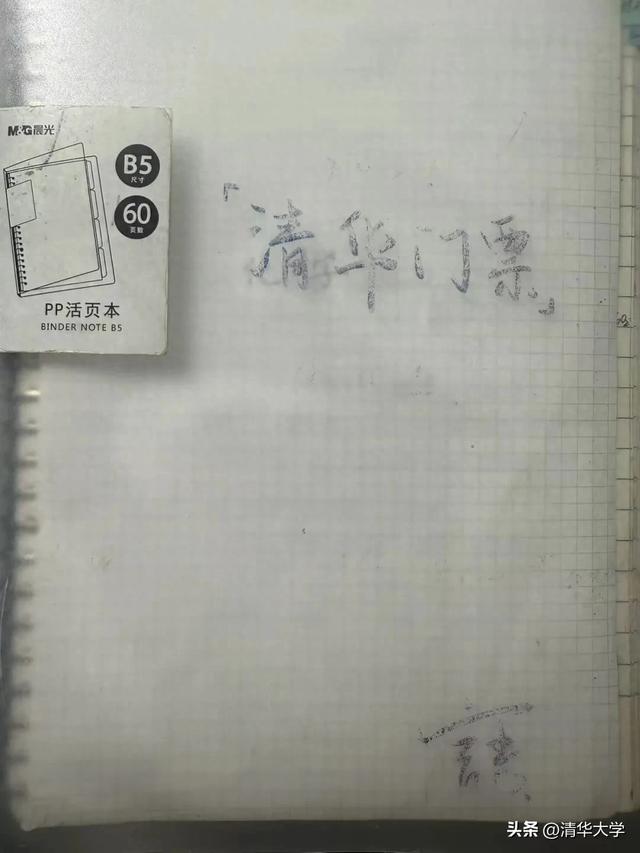 M&G晨光
B5
尺寸
60
页数
PP活页本
BINDER NOTE B5
「清华门票」
头条 @清华大学